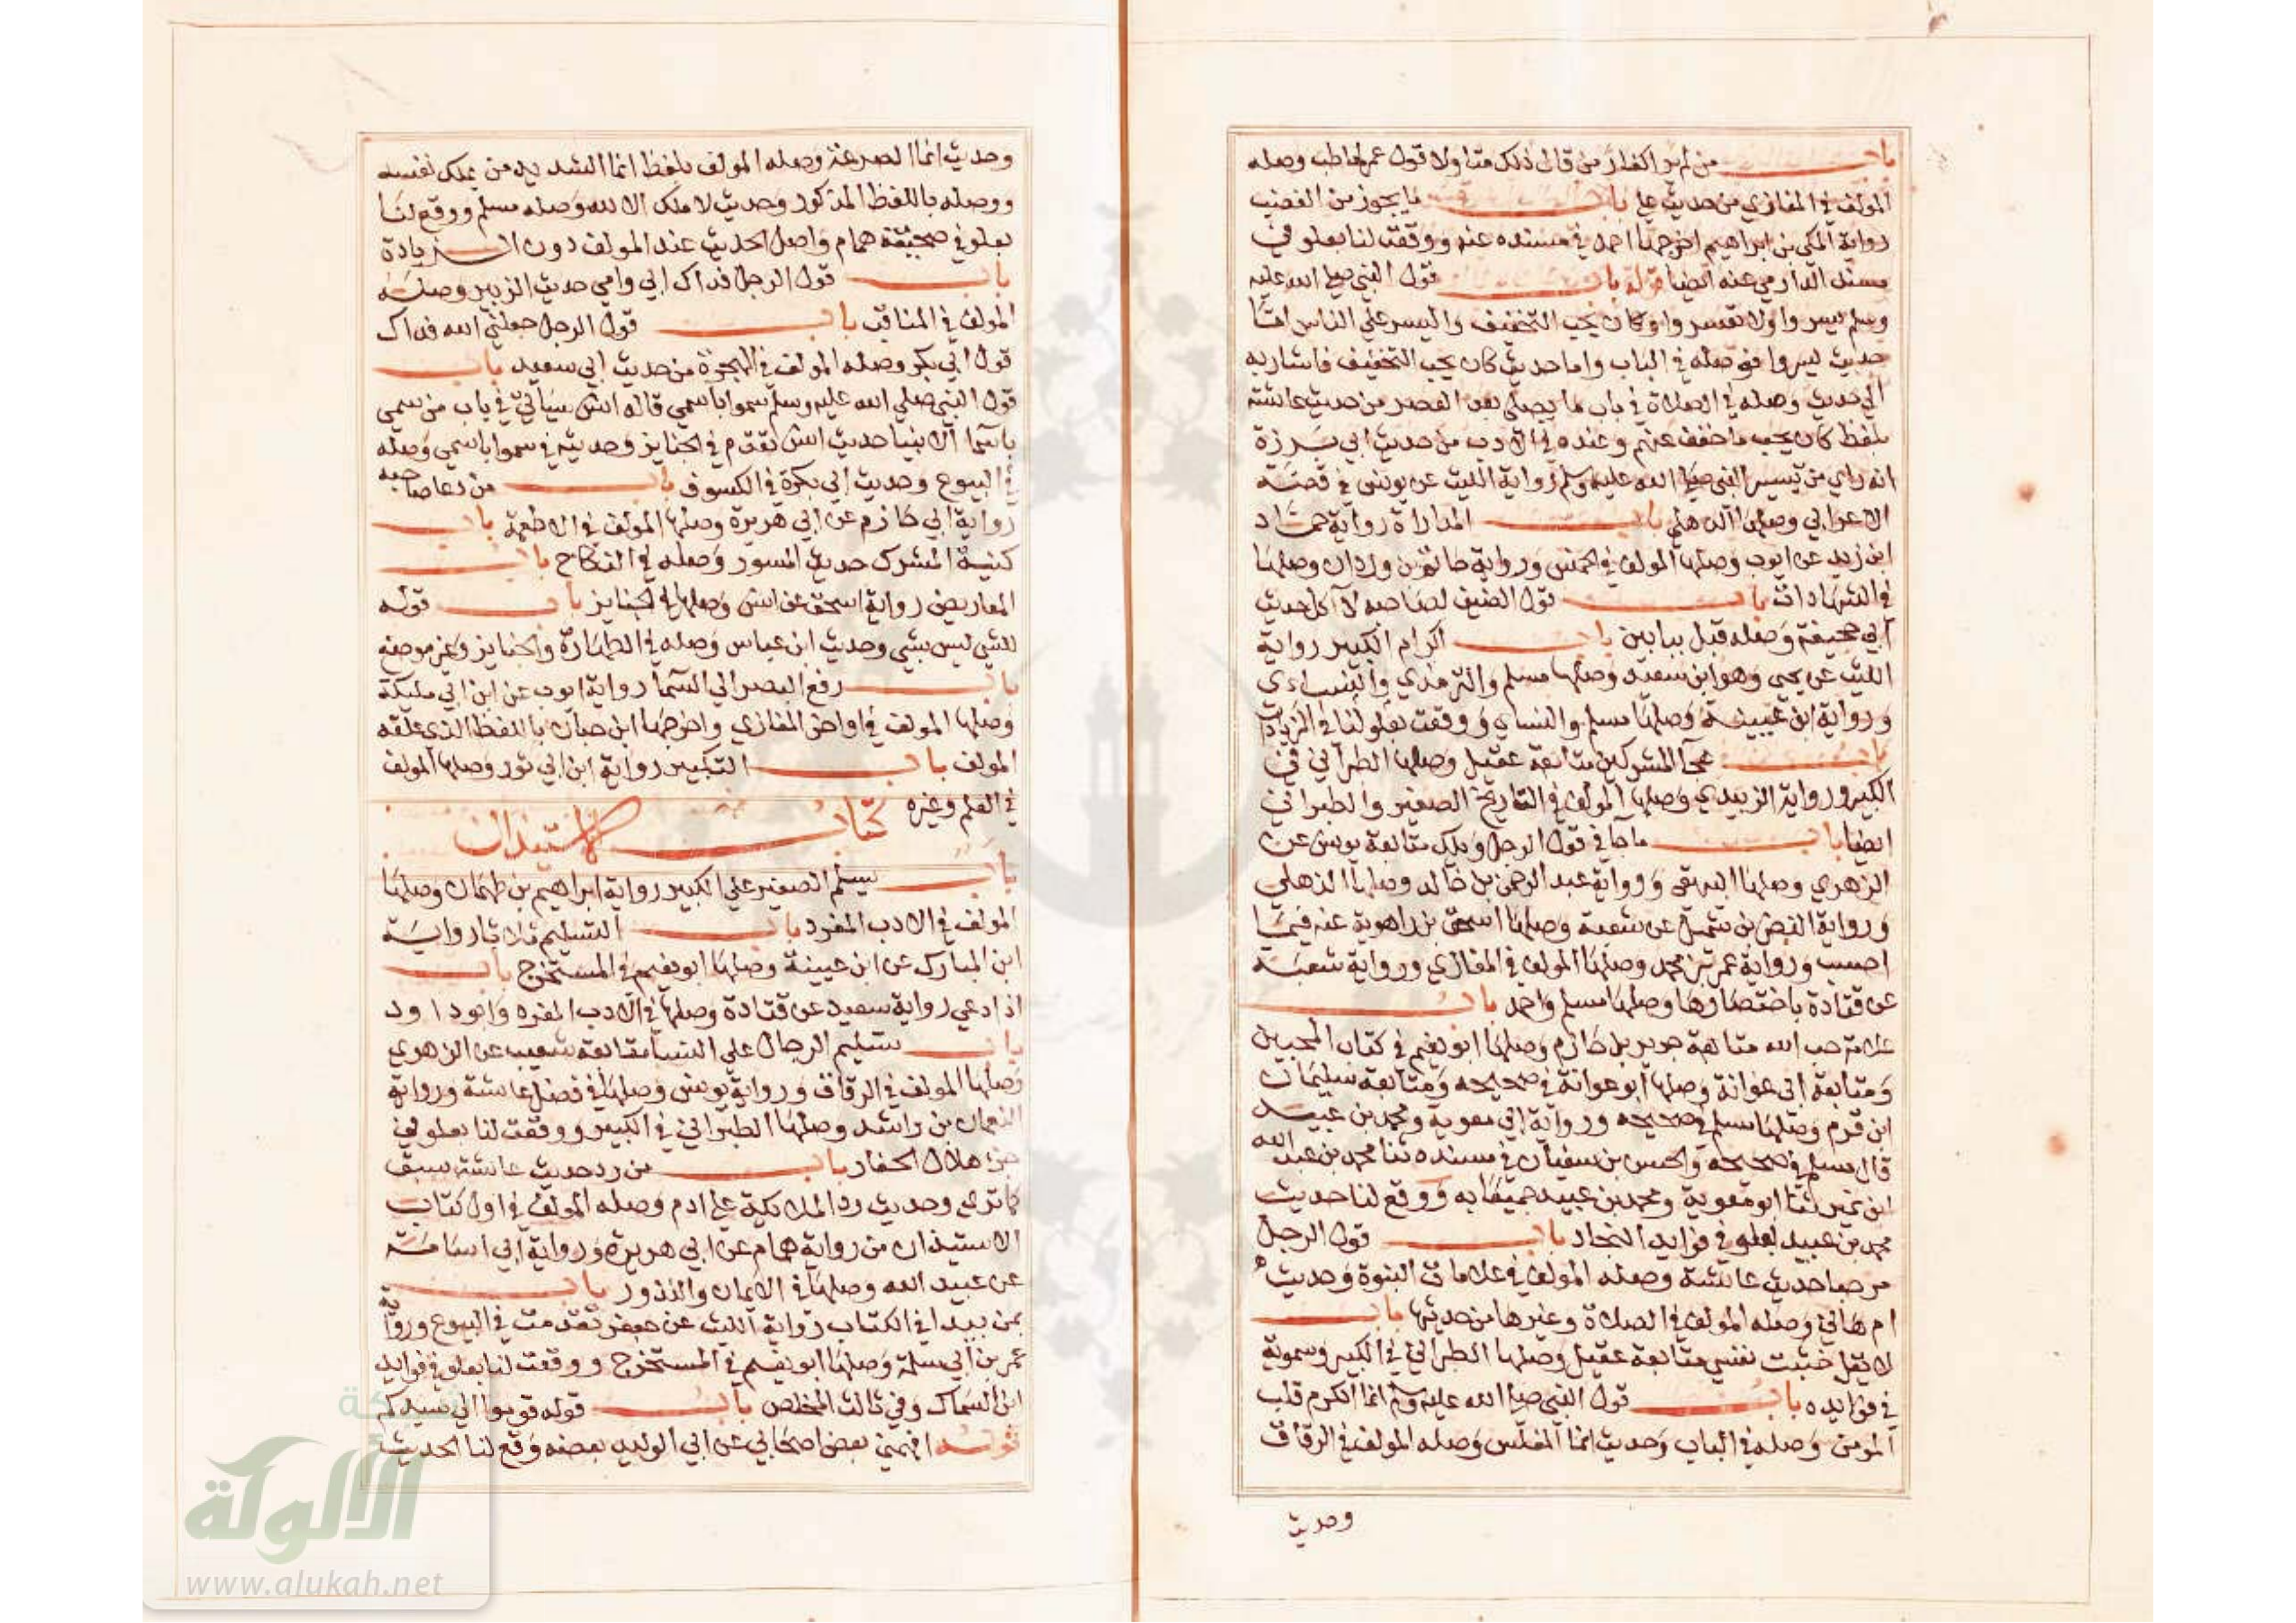 باب من لم ير اكفار من قال ذلك متاولا قول عمر لحاطب وصله
المولف في المغازي من حديث علي باب ما يجوز من الغضب
رواية المكي بن ابراهيم اخرجها احمد في مسنده عنه ووقعت لنا بعلو في
مسند الدارمي عنه ايضا قوله باب قول النبي صلى الله عليه
وسلم يسروا ولا تعسروا وكان يحب التخفيف واليسر على الناس اما
حديث يسروا فوصله في الباب واما حديث كان يحب التخفيف فاشار به
الى حديث وصله في الصلاة في باب ما يصلي بعد العصر من حديث عائشة
بلفظ كان يحب ما خفف عنهم وعنده في الادب من حديث ابي برزة
انه راي من تيسير النبي صلى الله عليه وسلم رواية الليث عن يونس في قصة
الاعرابي وصلها الذهلي باب المداراة رواية حماد
ابن زيد عن ايوب وصلها المولف في الخمس ورواية حاتم بن وردان وصلها
في الشهادات باب قول الضيف لصاحبه لا آكل حديث
ابي جحيفة وصله قبل ببابين باب اكرام الكبير رواية
الليث عن يحيى وهو ابن سعيد وصلها مسلم والترمذي والنساءي
ورواية ابن عيينة وصلها مسلم والنساي ووقعت بعلو لنا في الزيادات
باب هجآ المشركين متابعة عقيل وصلها الطبراني في
الكبير ورواية الزبيدي وصلها المولف في التاريخ الصغير والطبراني
ايضا باب ما جآ في قول الرجل ويلك متابعة يونس عن
الزهري وصلها البيهقي ورواية عبد الرحمن بن خالد وصلها الذهلي
ورواية النضر بن شميل عن شعبة وصلها اسحق بن راهوية عنه فيما
احسب ورواية عمر بن محمد وصلها المولف في المغازي ورواية شعبة
عن قتادة باختصارها وصلها مسلم واحمد باب
علامة حب الله متابعة جرير بن حازم وصلها ابو نعيم في كتاب المحبين
ومتابعة ابي عوانة وصلها ابو عوانة في صحيحه ومتابعة سليمان
ابن قرم وصلها مسلم في صحيحه ورواية ابي معوية ومحمد بن عبيد
قال مسلم في صحيحه والحسن بن سفيان في مسنده ثنا محمد بن عبد الله
ابن نمير ثنا ابو معوية ومحمد بن عبيد جميعا به ووقع لنا حديث
محمد بن عبيد بعلو في فوايد النجاد باب قول الرجل
مرحبا حديث عائشة وصله المولف في علامات النبوة وحديث
ام هاني وصله المولف في الصلاة وغيرها من حديثها باب
لا يقل خبثت نفسي متابعة عقيل وصلها الطبراني في الكبير وسموية
في فوايده باب قول النبي صلى الله عليه وسلم انما الكرم قلب
المومن وصله في الباب وحديث انما المفلس وصله المولف في الرقاق
وحديث
وحديث انما الصرعة وصله المولف بلفظ انما الشديد من يملك نفسه
ووصله باللفظ المذكور وحديث لا ملك الا لله وصله مسلم ووقع لنا
بعلو في صحيفة همام واصل الحديث عند المولف دون الزيادة
باب قول الرجل فداك ابي وامي حديث الزبير وصله
المولف في المناقب باب قول الرجل جعلني الله فداك
قول ابي بكر وصله المولف في الهجرة من حديث ابي سعيد باب
قول النبي صلى الله عليه وسلم سموا باسمي قاله انس سياتي في باب من سمي
باسما الانبيا حديث انس تقدم في الجنايز وحديثه في سموا باسمي وصله
في البيوع وحديث ابي بكرة في الكسوف باب من دعا صاحبه
رواية ابي حازم عن ابي هريرة وصلها المولف في الاطعمة باب
كنية المشرك حديث المسور وصله في النكاح باب
المعاريض رواية اسحق عن انس وصلها في الجنايز باب قوله
للشي ليس بشي وحديث ابن عباس وصله في الطهارة والجنايز وغير موضع
باب رفع البصر الى السما رواية ايوب عن ابن ابي مليكة
وصلها المولف في اواخر المغازي واخرجها ابن حبان باللفظ الذي علقه
المولف باب التكبير رواية ابن ابي ثور وصلها المولف
في العلم وغيره كتاب الاستيذان
باب يسلم الصغير على الكبير رواية ابراهيم بن طهمان وصلها
المولف في الادب المفرد باب التسليم ثلاثا رواية
ابن المبارك عن ابن عيينة وصلها ابو نعيم في المستخرج باب
اذا دعي رواية سعيد عن قتادة وصلها في الادب المفرد وابو داود
باب تسليم الرجال على النسا متابعة شعيب عن الزهري
وصلها المولف في الرقاق ورواية يونس وصلها في فضل عائشة ورواية
النعمان بن راشد وصلها الطبراني في الكبير ووقعت لنا بعلو في
جزء هلال الحفار باب من رد حديث عائشة سبق
كما ترى وحديث رد الملائكة على ادم وصله المولف في اول كتاب
الاستيذان من رواية همام عن ابي هريرة ورواية ابي اسامة
عن عبيد الله وصلها في الايمان والنذور باب
بمن يبدا في الكتاب رواية الليث عن جعفر تقدمت في البيوع ورواية
عمر بن ابي سلمة وصلها ابو نعيم في المستخرج ووقعت لنا بعلو في فوايد
ابن السماك وفي ثالث المخلص باب قوله قوموا الى سيدكم
قوله افهمني بعض اصحابي عن ابي الوليد بعضه وقع لنا الحديث
شبكة
الألوكة
www.alukah.net